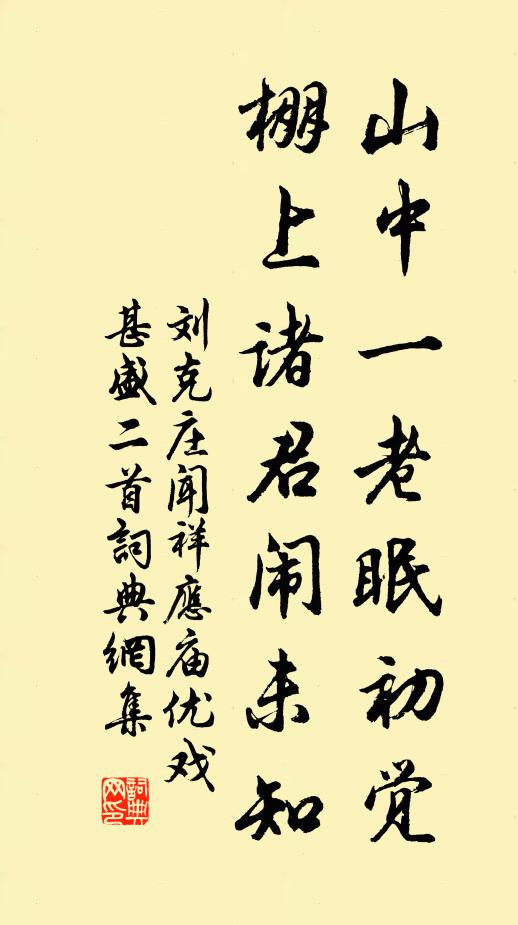 山中一老眠初觉
棚上诸君闹未知
刘克庄闻祥應庙优戏
甚盛二首詞典網集
詞典
网印